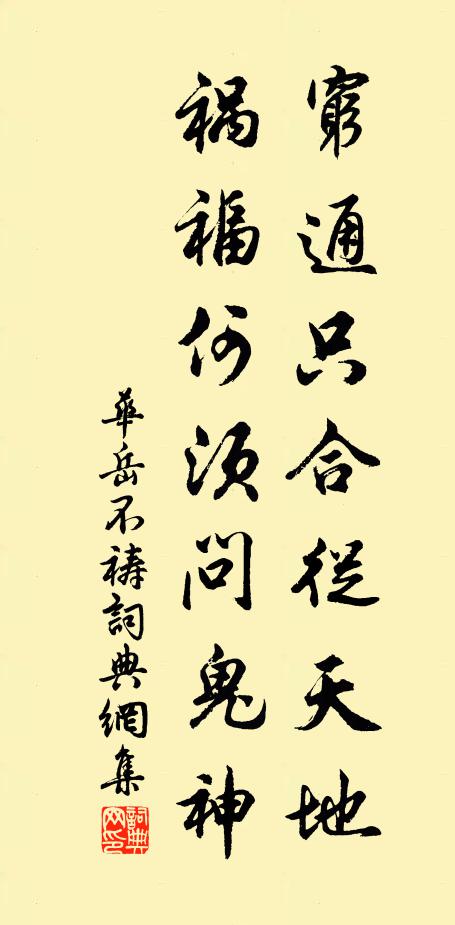 窮通只合從天地
禍福何須問鬼神
華岳不禱詞典網集
詞典网印